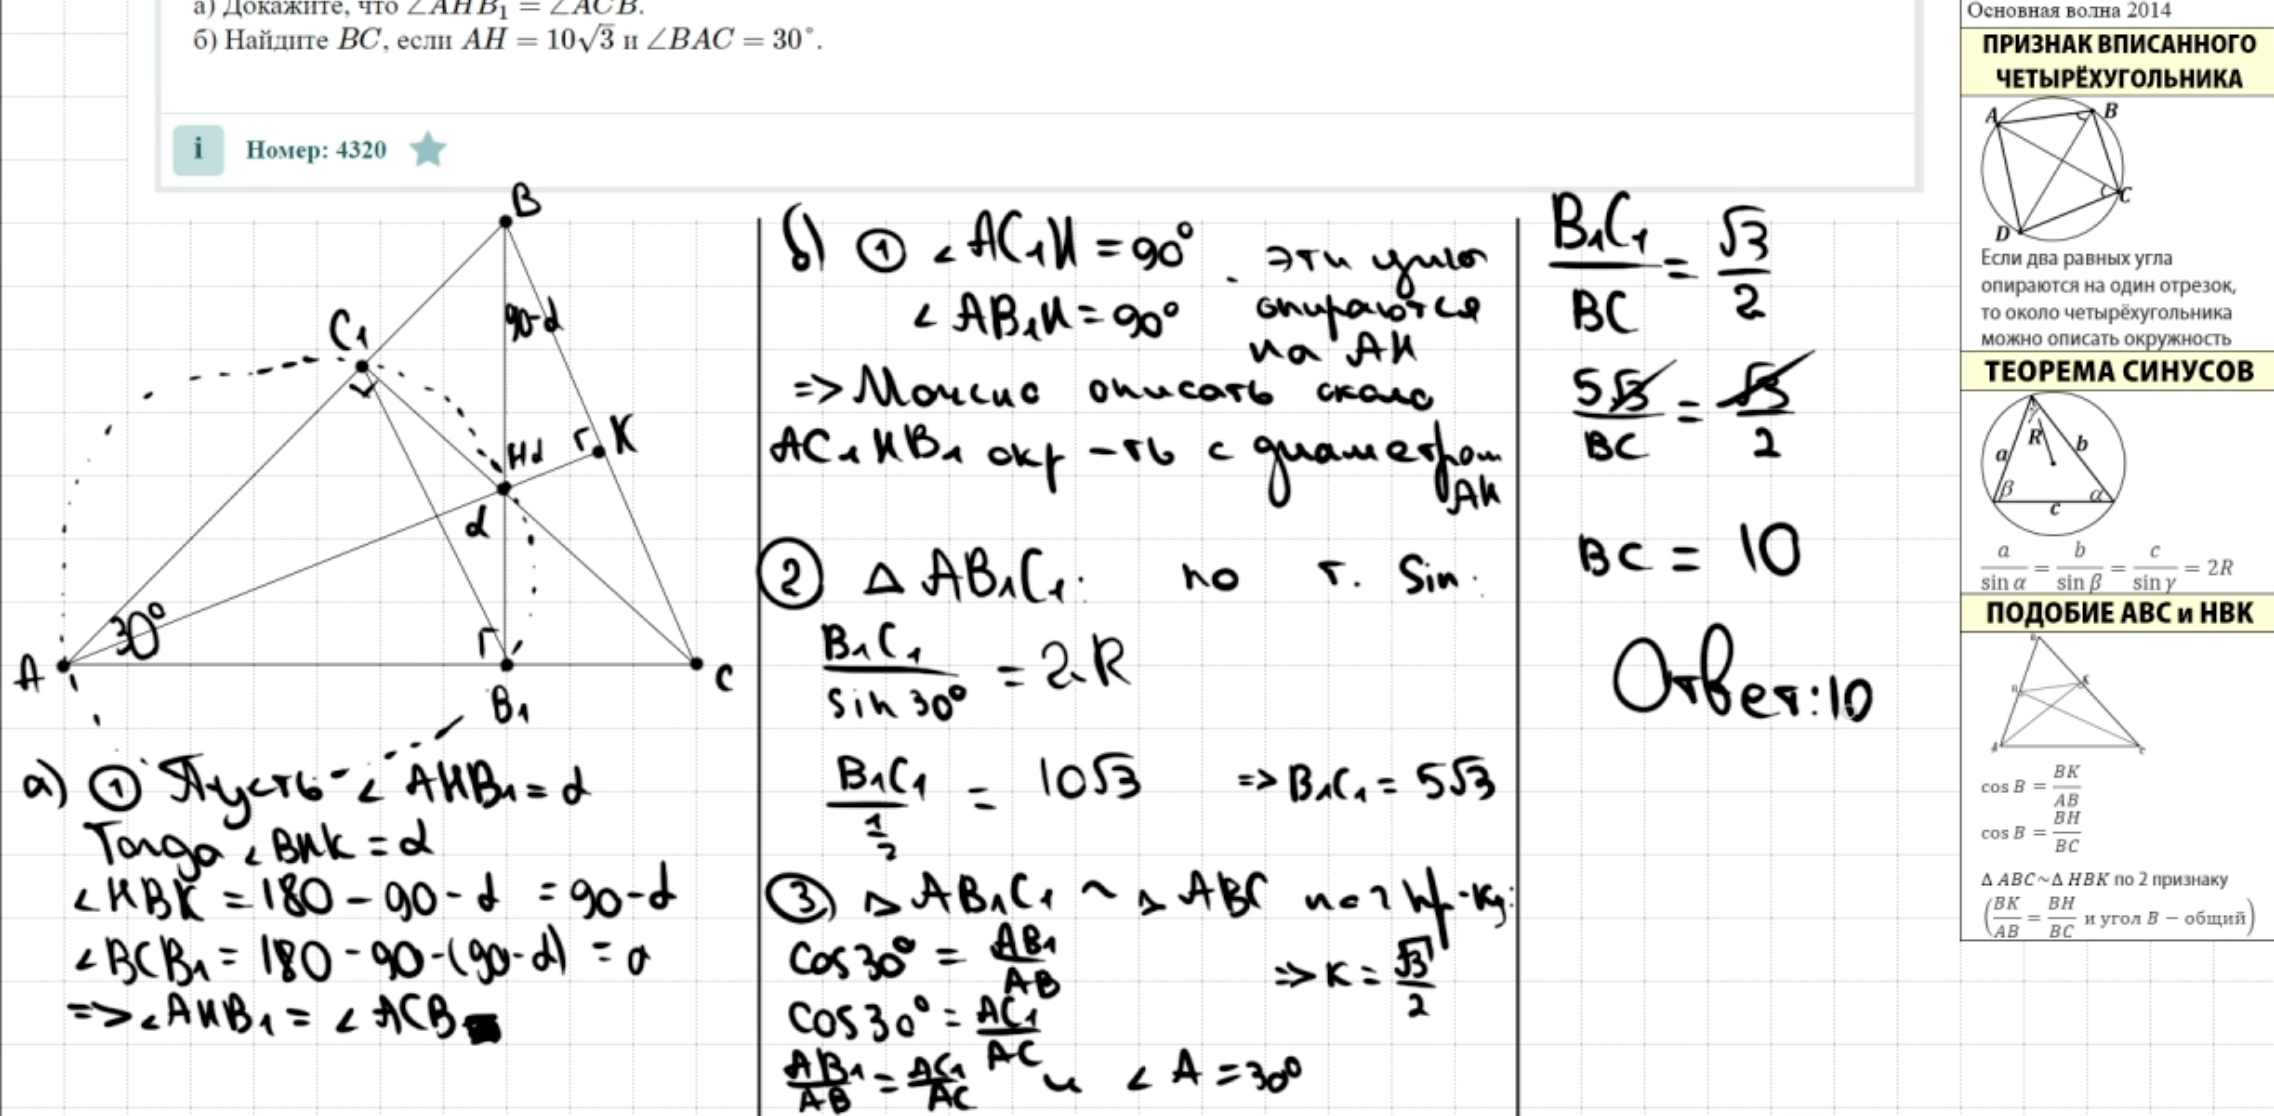 а) Докажите, что ∠AHB₁ = ∠ACB.
б) Найдите BC, если AH = 10√3 и ∠BAC = 30°.
i Номер: 4320
B
90-α
C₁
Hα
K
α
30°
A
B₁
C
а) ① Пусть ∠AHB₁ = α
Тогда ∠BHK = α
∠HBK = 180 - 90 - α = 90 - α
∠BCB₁ = 180 - 90 - (90 - α) = α
=> ∠AHB₁ = ∠ACB
б) ① ∠AC₁H = 90°
∠AB₁H = 90°
эти углы
опираются
на AH
=> Можно описать около
AC₁HB₁ окр-ть с диаметром
AH
② Δ AB₁C₁: по т. sin:
B₁C₁ / sin 30° = 2R
B₁C₁ / ½ = 10√3 => B₁C₁ = 5√3
③ Δ AB₁C₁ ~ Δ ABC по 2 пр-ку:
cos 30° = AB₁/AB
=> K = √3/2
cos 30° = AC₁/AC
AB₁/AB = AC₁/AC и ∠A = 30°
B₁C₁/BC = √3/2
5√3/BC = √3/2
BC = 10
Ответ: 10
Основная волна 2014
ПРИЗНАК ВПИСАННОГО
ЧЕТЫРЁХУГОЛЬНИКА
A
B
C
D
Если два равных угла
опираются на один отрезок,
то около четырёхугольника
можно описать окружность
ТЕОРЕМА СИНУСОВ
γ
R
a
b
β
α
c
a/sin α = b/sin β = c/sin γ = 2R
ПОДОБИЕ ABC и HBK
cos B = BK/AB
cos B = BH/BC
Δ ABC~Δ HBK по 2 признаку
(BK/AB = BH/BC и угол B – общий)